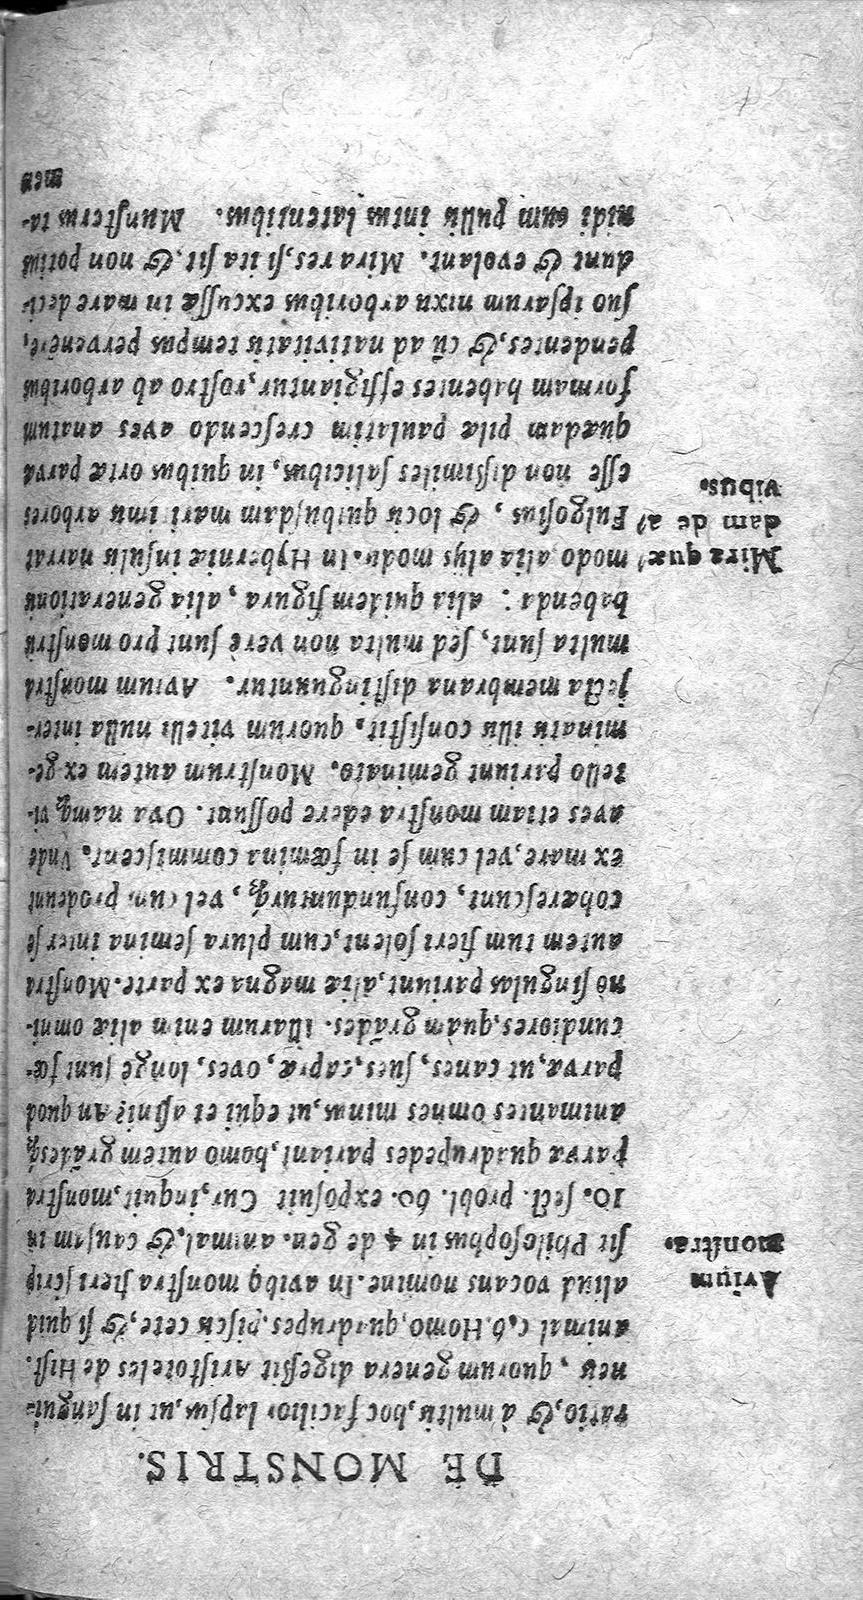 DE MONSTRIS.
ratio, & à multis, hoc facilior lapsus, ut in sangui-
neis, quorum genera digessit Aristoteles de Hist.
animal c. 6. Homo, quadrupes, piscis cete, & si quid
aliud vocans nomine. In avibꝰ monstra fieri scrip
sit Philosophus in 4 de gen. animal. & causam in
10. sect. probl. 60. exposuit Cur, inquit, monstra
parva quadrupedes pariant, homo autem grãdesq́;
animantes omnes minus, ut equi et asini? An quod
parva, ut canes, sues, capræ, oves, longè sunt fœ-
cundiores, quàm grãdes. illarum enim aliæ omni-
nò singulas pariunt, aliæ magna ex parte. Monstra
autem tum fieri solent, cum plura semina inter se
cohærescunt, confundunturq́;, vel cum prodeunt
ex mare, vel cum se in fœmina commiscent. Vnde
aves etiam monstra edere possunt. Ova namq; vi-
tello pariunt geminato. Monstrum autem ex ge-
minatis illis consistit, quorum vitelli nulla inter-
jecta membrana distinguuntur. Avium monstra
multa sunt, sed multa non verè sunt pro monstris
habenda: alia quidem figura, alia generationis
modo, alia alijs modis. In Hyberniæ insulis narrat
Fulgosius, & locis quibusdam mari imis arbores
esse non dissimiles salicibus, in quibus ortæ parva
quædam pilæ paulatim crescendo aves anatum
formam habentes effigiantur, rostro ab arboribus
pendentes, & cũ ad nativitatis tempus pervenêre,
suo ipsarum nixu arboribus excussæ in mare deci-
dunt & evolant. Mira res, si ita sit, & non potius
nidi cum pullis intus latentibus. Munsterus ta-
men
Avium
monstra.
Mira quæ-
dam de a-
vibus.